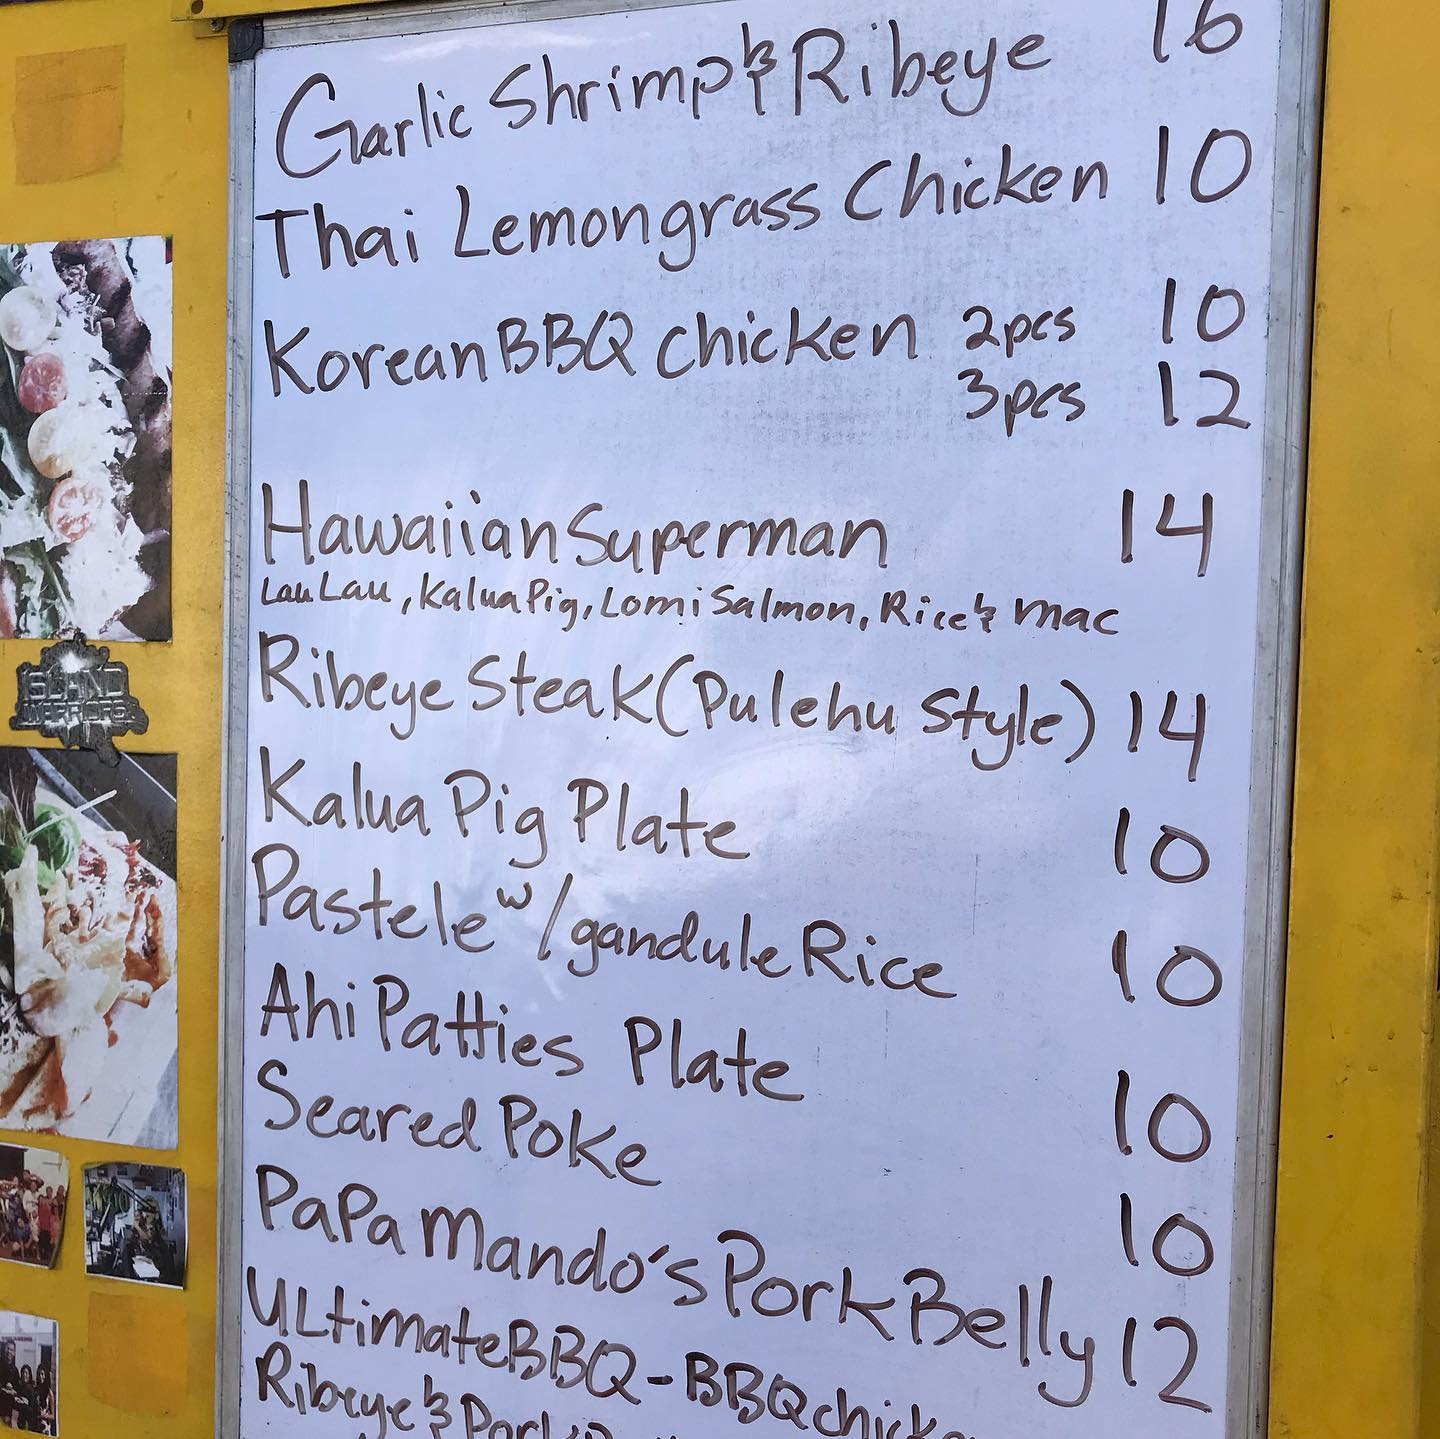 Garlic Shrimp & Ribeye 16
Thai Lemongrass Chicken 10
Korean BBQ chicken 2pcs 10
3pcs 12
Hawaiian Superman 14
Lau Lau, Kalua Pig, Lomi Salmon, Rice & mac
Ribeye Steak (Pulehu Style) 14
Kalua Pig Plate 10
Pastele w/gandule Rice 10
Ahi Patties Plate 10
Seared Poke 10
PaPa Mando's Pork Belly 12
ULtimate BBQ - BBQ
Ribeye &
ISLAND